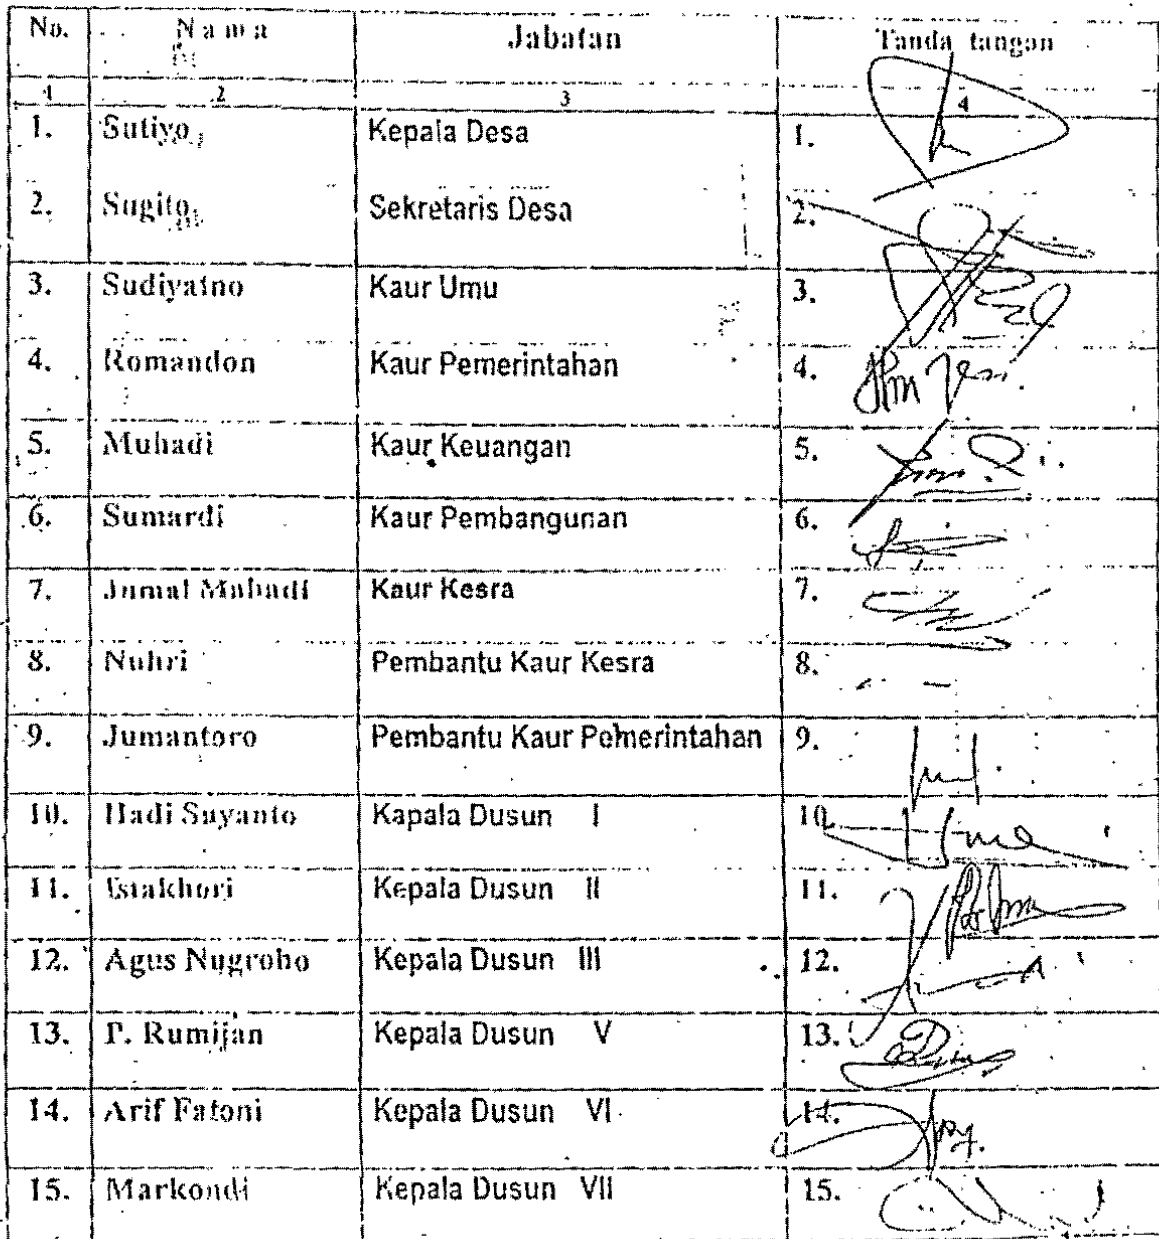 No. Nama Jabatan Tanda tangan
1 2 3 4
1. Sutiyo Kepala Desa 1.
2. Sugito Sekretaris Desa 2.
3. Sudiyatno Kaur Umu 3.
4. Romandon Kaur Pemerintahan 4.
5. Muhadi Kaur Keuangan 5.
6. Sumardi Kaur Pembangunan 6.
7. Jumal Mahadi Kaur Kesra 7.
8. Nuhri Pembantu Kaur Kesra 8.
9. Jumantoro Pembantu Kaur Pemerintahan 9.
10. Hadi Suyanto Kapala Dusun I 10.
11. Istakhori Kepala Dusun II 11.
12. Agus Nugroho Kepala Dusun III 12.
13. P. Rumijan Kepala Dusun V 13.
14. Arif Fatoni Kepala Dusun VI 14.
15. Markondi Kepala Dusun VII 15.